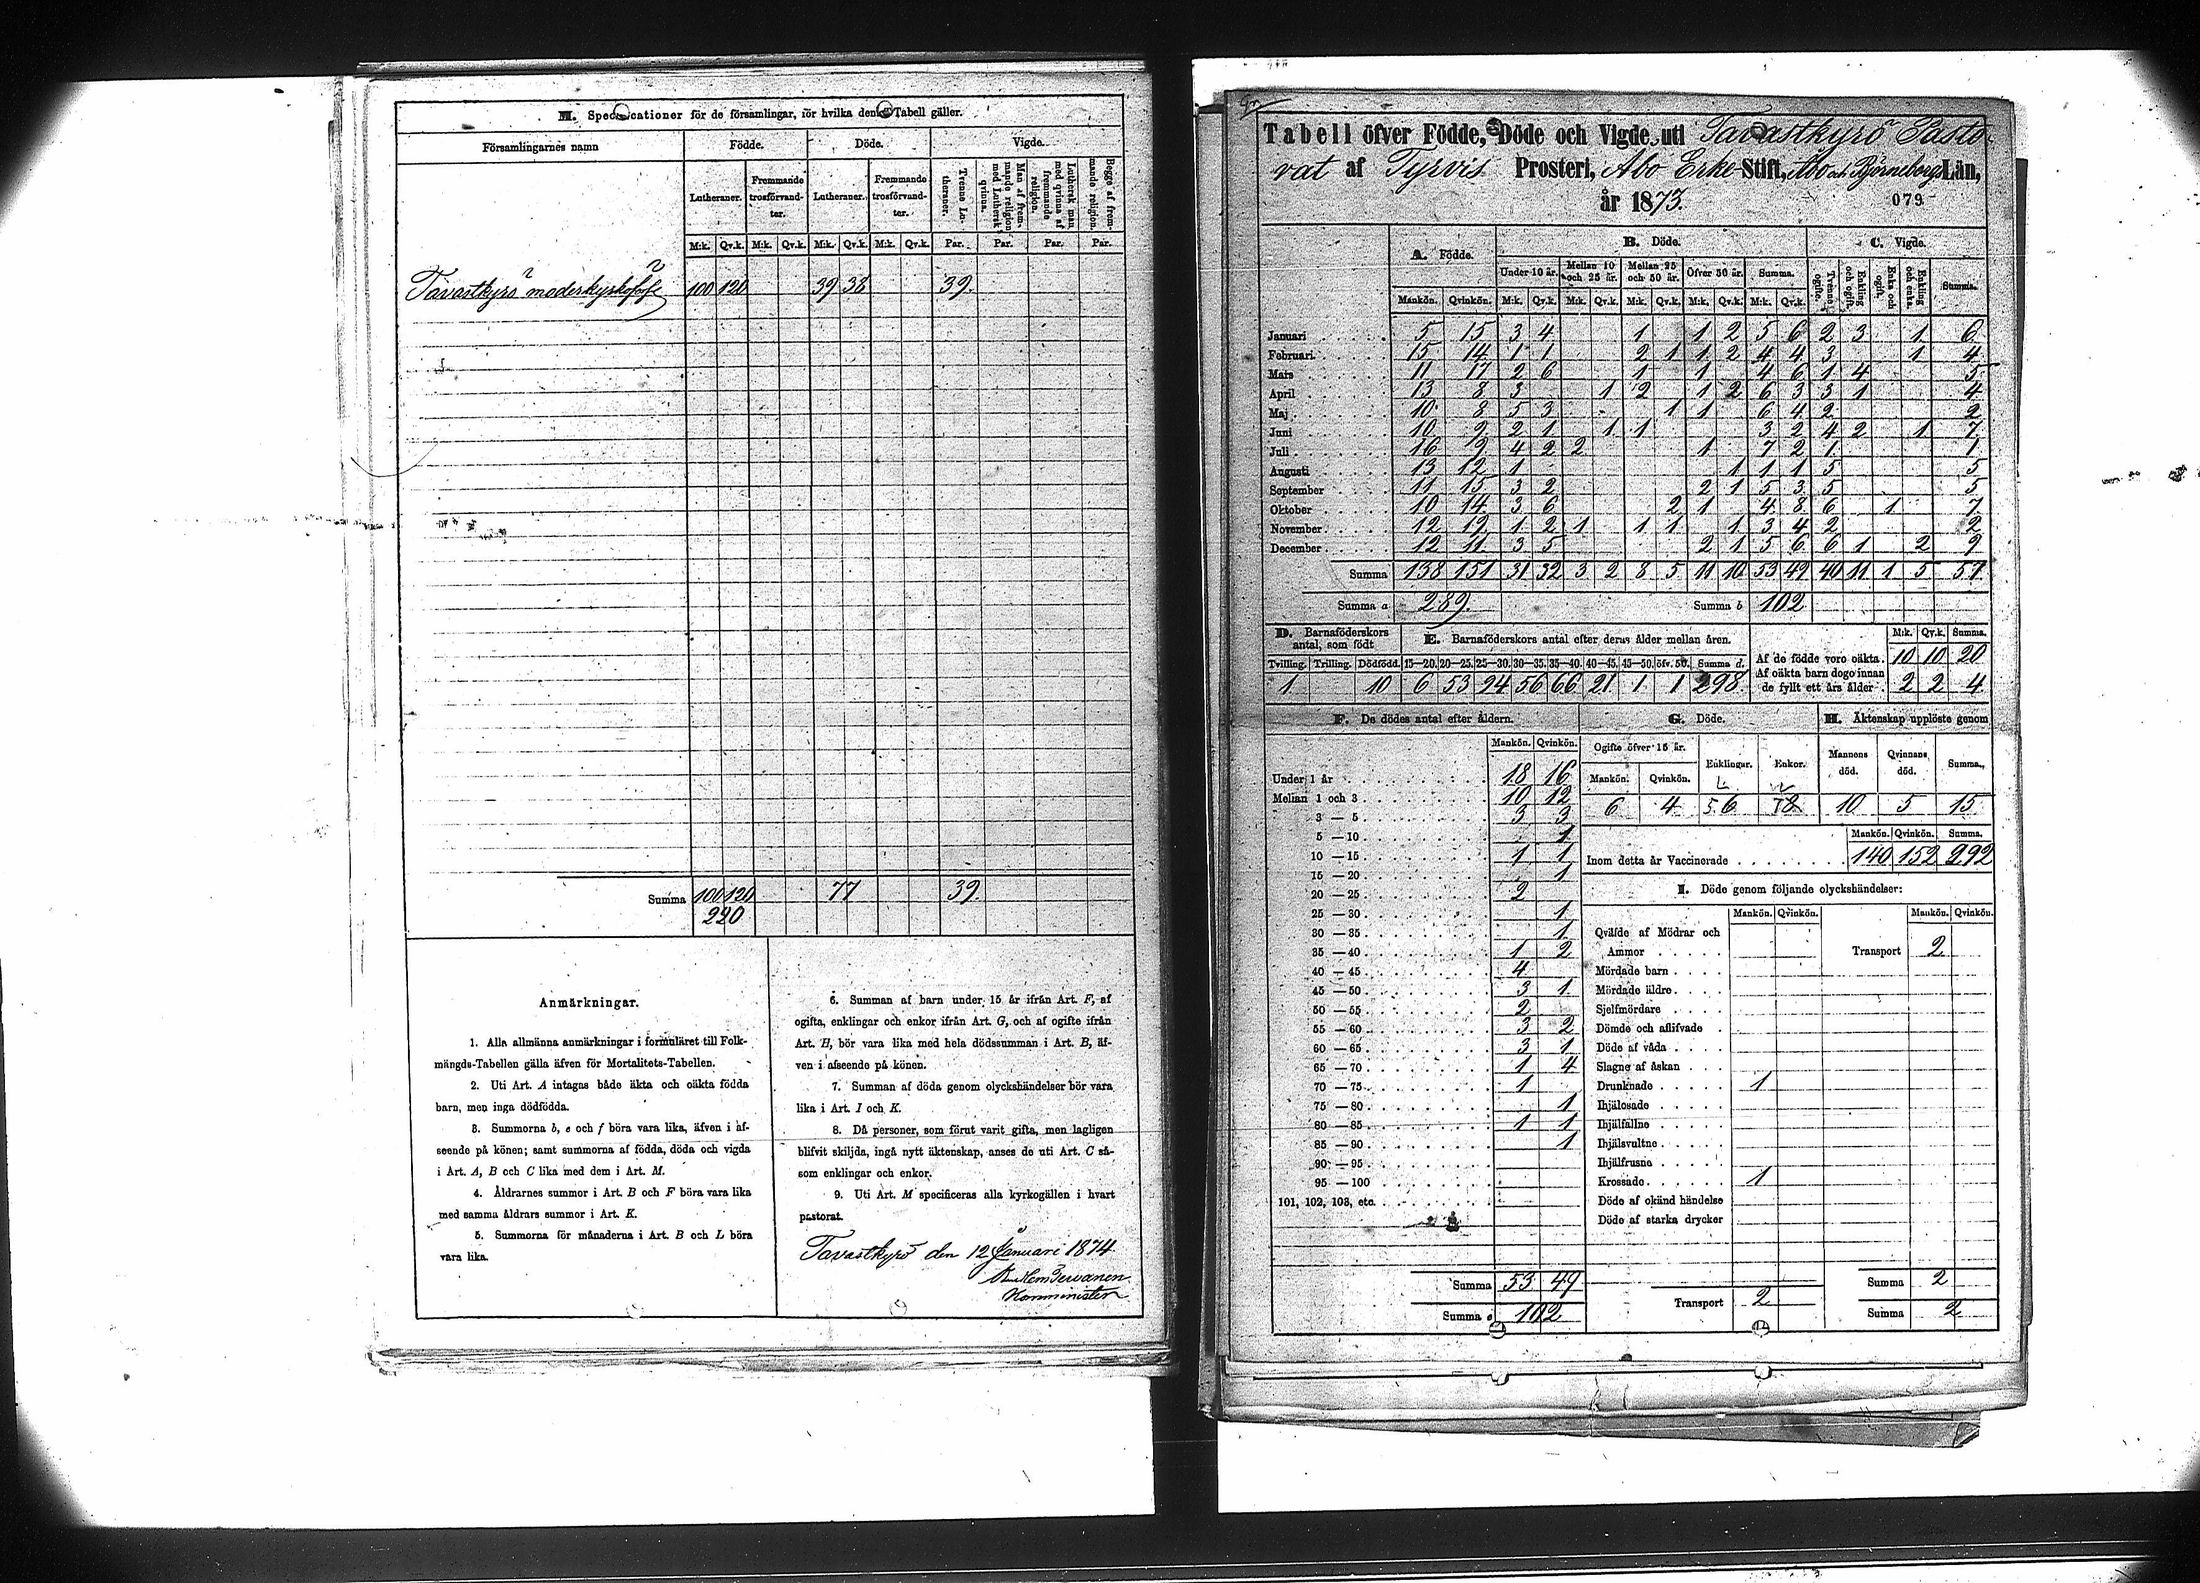 M. Specificationer för de församlingar, för hvilka denna Tabell gäller.
Församlingarnes namn Födde. Döde. Vigde.
Lutheraner. Fremmande trosförvandter. Lutheraner. Fremmande trosförvandter. Tvenne Lutheraner. Man af fremmande religion med Luthersk qvinna. Luthersk man med qvinna af fremmande religion. Begge af fremmande religion.
M:k. Qv.k. M:k. Qv.k. M:k. Qv.k. M:k. Qv.k. Par. Par. Par. Par.
Tavastkyrö 100 120 39 38 39.
Summa 100 120 77 39.
220
Anmärkningar.
1. Alla allmänna anmärkningar i formuläret till Folk-
mängds-Tabellen gälla äfven för Mortalitets-Tabellen.
2. Uti Art. A intagas både äkta och oäkta födda
barn, men inga dödfödda.
3. Summorna b, e och f böra vara lika, äfven i af-
seende på könen; samt summorna af födda, döda och vigda
i Art. A, B och C lika med dem i Art. M.
4. Åldrarnes summor i Art. B och F böra vara lika
med samma åldrars summor i Art. K.
5. Summorna för månaderna i Art. B och L böra
vara lika.
6. Summan af barn under 15 år ifrån Art. F, af
ogifta, enklingar och enkor ifrån Art. G, och af ogifte ifrån
Art. H, bör vara lika med hela dödssumman i Art. B, äf-
ven i afseende på könen.
7. Summan af döda genom olyckshändelser bör vara
lika i Art. I och K.
8. Då personer, som förut varit gifta, men lagligen
blifvit skiljda, ingå nytt äktenskap, anses de uti Art. C så-
som enklingar och enkor.
9. Uti Art. M specificeras alla kyrkogällen i hvart
pastorat.
Tavastkyrö den 12 Januari 1874
Komminister
Tabell öfver Födde, Döde och Vigde uti Tavastkyrö Pasto-
rat af Tyrvis Prosteri, Åbo Erke Stift, Åbo och Björneborgs Län,
år 1873. 079
A. Födde. B. Döde. C. Vigde.
Under 10 år. Mellan 10 och 25 år. Mellan 25 och 50 år. Öfver 50 år. Summa. Tvänne ogifte. Enkling och ogift. Enka och ogift. Enkling och enka. Summa.
Mankön. Qvinkön. M:k. Qv.k. M:k. Qv.k. M:k. Qv.k. M:k. Qv.k. M:k. Qv.k.
Januari 5 15 3 4 1 1 2 5 6 2 3 1 6
Februari 15 14 1 1 2 1 1 2 4 4 3 1 4
Mars 11 17 2 6 1 1 4 6 1 4 5
April 13 8 3 1 2 1 2 6 3 3 1 4
Maj 10 8 5 3 1 1 6 4 2 2
Juni 10 9 2 1 1 1 3 2 4 2 1 7
Juli 16 9 4 2 2 1 7 2 1 1
Augusti 13 12 1 1 1 1 5 5
September 11 15 3 2 2 1 5 3 5 5
Oktober 10 14 3 6 2 1 4 8 6 1 7
November 12 12 1 2 1 1 1 1 3 4 2 2
December 12 11 3 5 2 1 5 6 6 1 2 9
Summa 138 151 31 32 3 2 8 5 11 10 53 49 40 11 1 5 57
Summa a 289. Summa b 102
D. Barnaföderskors antal, som födt E. Barnaföderskors antal efter deras ålder mellan åren. M:k. Qv.k. Summa.
Tvilling. Trilling. Dödfödd. 15—20. 20—25. 25—30. 30—35. 35—40. 40—45. 45—50. öfv. 50. Summa d. Af de födde voro oäkta. 10 10 20
1 10 6 53 94 56 66 21 1 1 298 Af oäkta barn dogo innan de fyllt ett års ålder. 2 2 4
F. De dödes antal efter åldern. G. Döde. H. Äktenskap upplöste genom
Mankön. Qvinkön. Ogifte öfver 15 år. Enklingar. Enkor. Mannens död. Qvinnans död. Summa.
Mankön. Qvinkön.
6 4 10 5 15
Under 1 år 18 16
Mellan 1 och 3 10 12
3 — 5 3 3
5 — 10 1
10 — 15 1 1
15 — 20 1
20 — 25 2
25 — 30 1
30 — 35 1
35 — 40 1 2
40 — 45 4
45 — 50 3 1
50 — 55 2
55 — 60 3 2
60 — 65 3 1
65 — 70 1 4
70 — 75 1
75 — 80 1
80 — 85 1 1
85 — 90 1
90 — 95
95 — 100
101, 102, 103, etc.
Summa 53 49
Summa e 102
Mankön. Qvinkön. Summa.
Inom detta år Vaccinerade 140 152 292
I. Döde genom följande olyckshändelser:
Mankön. Qvinkön. Mankön. Qvinkön.
Qväfde af Mödrar och
Ammor Transport 2
Mördade barn
Mördade äldre
Sjelfmördare
Dömde och aflifvade
Döde af våda
Slagne af åskan
Drunknade 1
Ihjälosade
Ihjälfallne
Ihjälsvultne
Ihjälfrusne
Krossade 1
Döde af okänd händelse
Döde af starka drycker
Summa 2
Transport 2
Summa 2